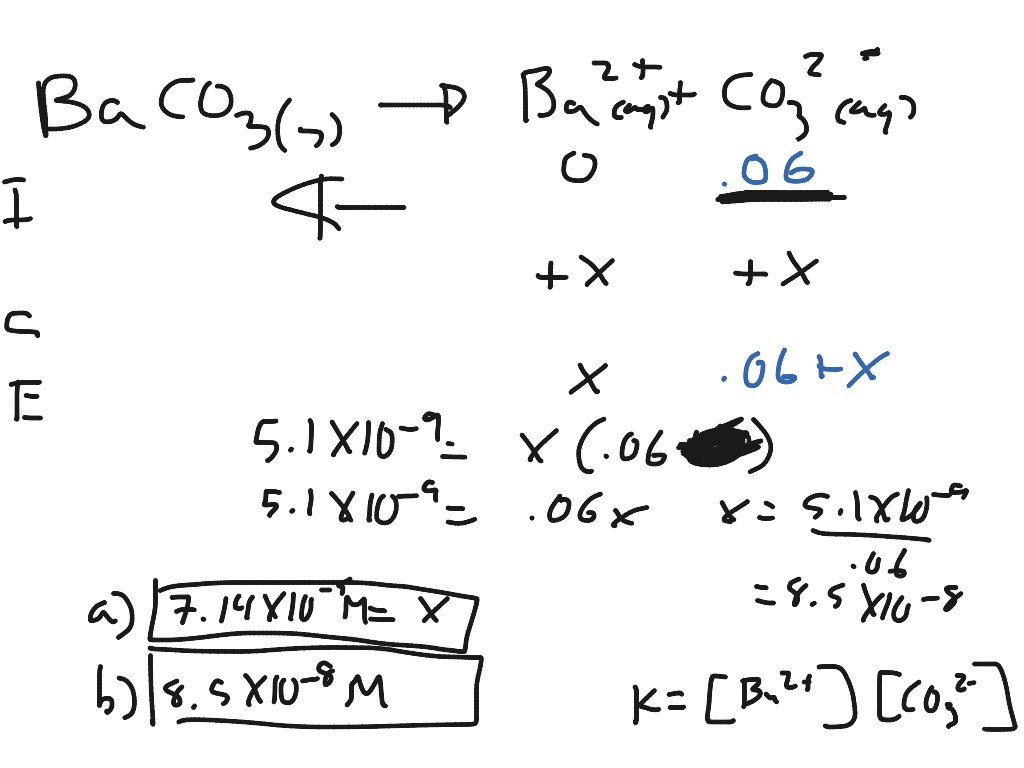 BaCO₃(s) → Ba²⁺(aq) + CO₃²⁻(aq)
I ← 0 .06
C +x +x
E x .06+x
5.1 X10⁻⁹ = x (.06 )
5.1 X10⁻⁹ = .06x x = 5.1X10⁻⁹
.06
= 8.5 X10⁻⁸
a) M = x
b) 8.5 X10⁻⁸ M
K = [Ba²⁺] [CO₃²⁻]